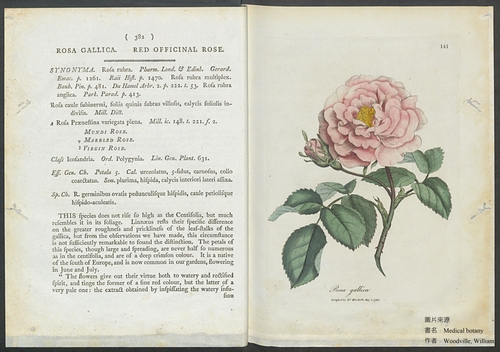 ( 382 )
ROSA GALLICA. RED OFFICINAL ROSE.
SYNONYMA. Rosa rubra. Pharm. Lond. & Edinb. Gerard.
Emac. p. 1261. Raii Hist. p. 1470. Rosa rubra multiplex.
Bauh. Pin. p. 481. Du Hamel Arbr. 2. p. 222. t. 53. Rosa rubra
anglica. Park. Parad. p. 413.
Rosa caule subinermi, foliis quinis subtus villosis, calycis foliolis in-
divisis. Mill. Dict.
Rosa Prænestina variegata plena. Mill. ic. 148. t. 221. f. 2.
MUNDI ROSE.
MARBLED ROSE.
VIRGIN ROSE.
Class Icosandria. Ord. Polygynia. Lin. Gen. Plant. 631.
Ess. Gen. Ch. Petala 5. Cal. urceolatus, 5-fidus, carnosus, collo
coarctatus. Sem. plurima, hispida, calycis interiori lateri affixa.
Sp. Ch. R. germinibus ovatis pedunculisque hispidis, caule petiolisque
hispido-aculeatis.
THIS species does not rise so high as the Centifolia, but much
resembles it in its foliage. Linnæus rests their specific difference
on the greater roughness and prickliness of the leaf-stalks of the
gallica, but from the observations we have made, this circumstance
is not sufficiently remarkable to found the distinction. The petals of
this species, though large and spreading, are never half so numerous
as in the centifolia, and are of a deep crimson colour. It is a native
of the south of Europe, and is now common in our gardens, flowering
in June and July.
"The flowers give out their virtue both to watery and rectified
spirit, and tinge the former of a fine red colour, but the latter of a
very pale one: the extract obtained by inspissating the watery infu-
sion
141
Rosa gallica
圖片來源
書名 Medical botany
作者 Woodville, William